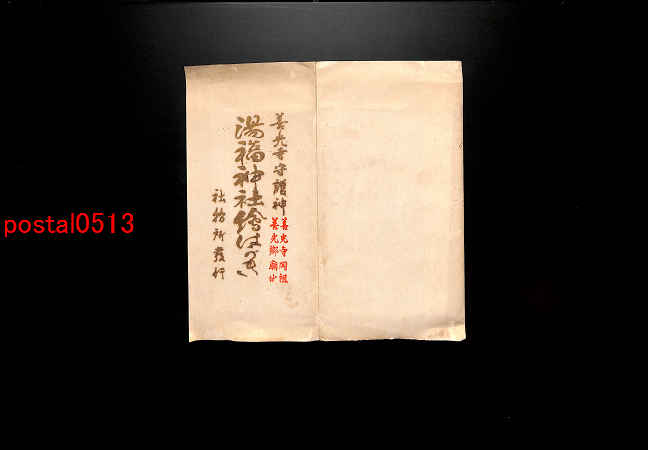 善光寺守護神
善光寺開祖
善光郷廟廿
湯福神社繪はがき
社務所發行
postal0513